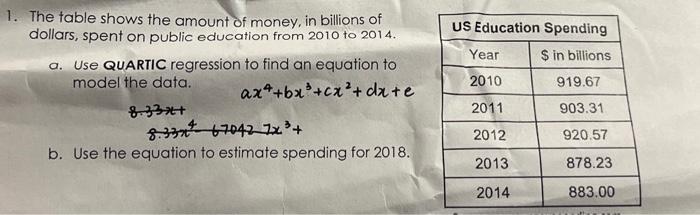 1. The table shows the amount of money, in billions of
dollars, spent on public education from 2010 to 2014.
a. Use QUARTIC regression to find an equation to
model the data.
ax⁴+bx³+cx²+dx+e
8.33x+
8.33x⁴ 67042.7x³+
b. Use the equation to estimate spending for 2018.
US Education Spending
Year $ in billions
2010 919.67
2011 903.31
2012 920.57
2013 878.23
2014 883.00